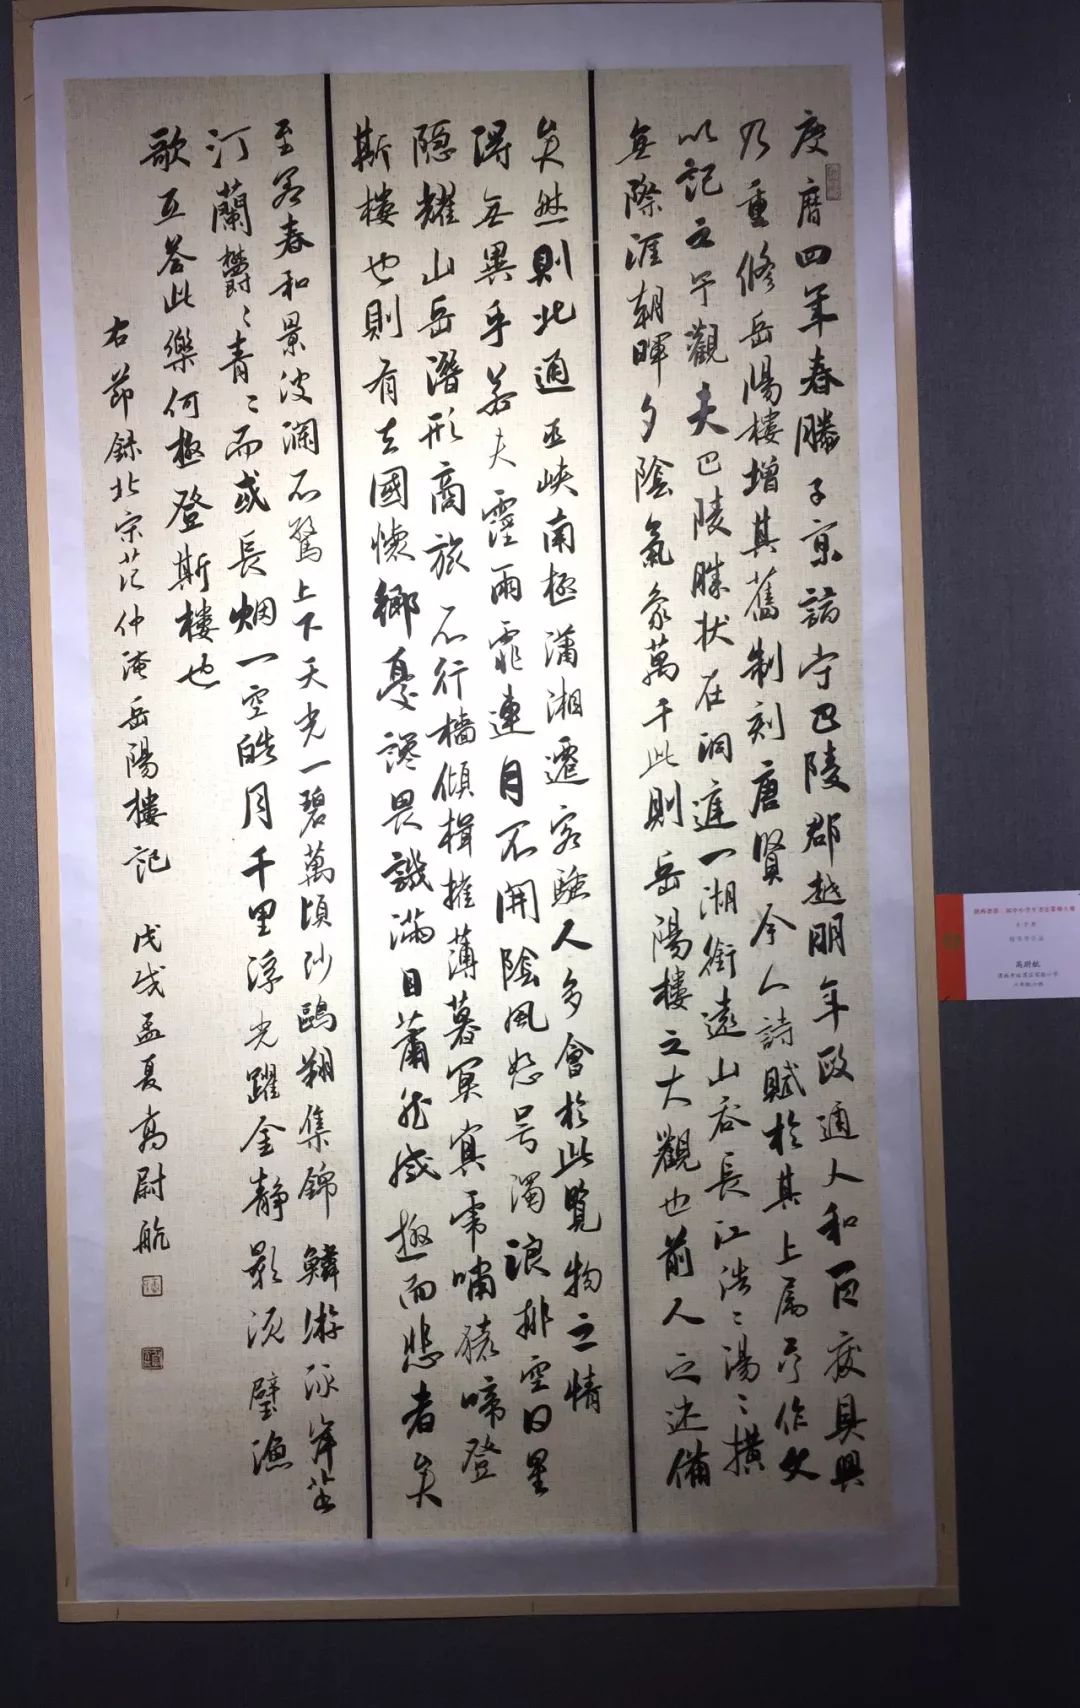 慶曆四年春滕子京謫守巴陵郡越明年政通人和百废具興
乃重修岳陽樓增其舊制刻唐賢今人詩賦於其上属予作文
以記之予觀夫巴陵勝状在洞庭一湖銜遠山吞長江浩〻湯〻横
無際涯朝暉夕陰氣象萬千此則岳陽樓之大觀也前人之述備
矣然則北通巫峡南極瀟湘遷客騷人多會於此覽物之情
得無異乎若夫霪雨霏連月不開陰風怒号濁浪排空日星
隐耀山岳潛形商旅不行檣傾楫摧薄暮冥冥虎嘯猿啼登
斯樓也則有去國懷鄉憂讒畏譏滿目蕭然感極而悲者矣
至若春和景波瀾不驚上下天光一碧萬頃沙鷗翔集錦鱗游泳岸芷
汀蘭欝〻青〻而或長烟一空皓月千里浮光躍金静影沉璧漁
歌互荅此樂何極登斯樓也
右節録北宋范仲淹岳陽樓記 戊戌孟夏高尉航
高尉航